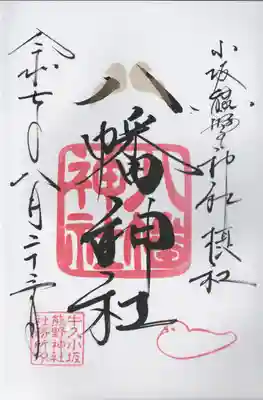 小坂熊野神社摂社
八幡神社
八幡神社
令和七年八月二十三日
牛久小坂
熊野神社
社務所印